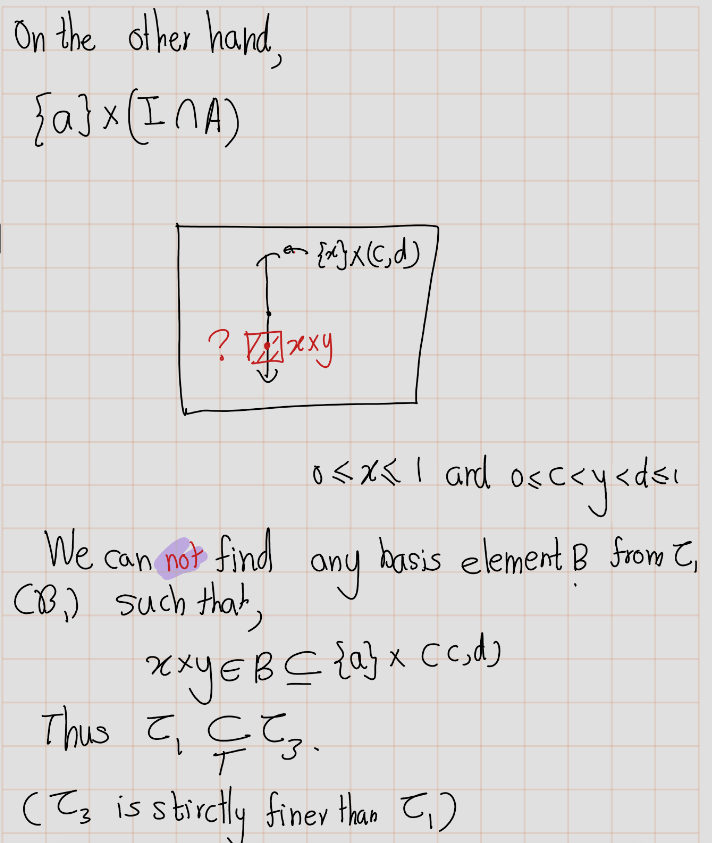 On the other hand,
{a}×(I∩A)
{x}×(c,d)
? x×y
0≤x≤1 and 0≤c<y<d≤1
We can not find any basis element B from τ₁
(𝓑₁) such that,
x×y∈B⊆{a}×(c,d)
Thus τ₁ ⊊ τ₃.
(τ₃ is stirctly finer than τ₁)